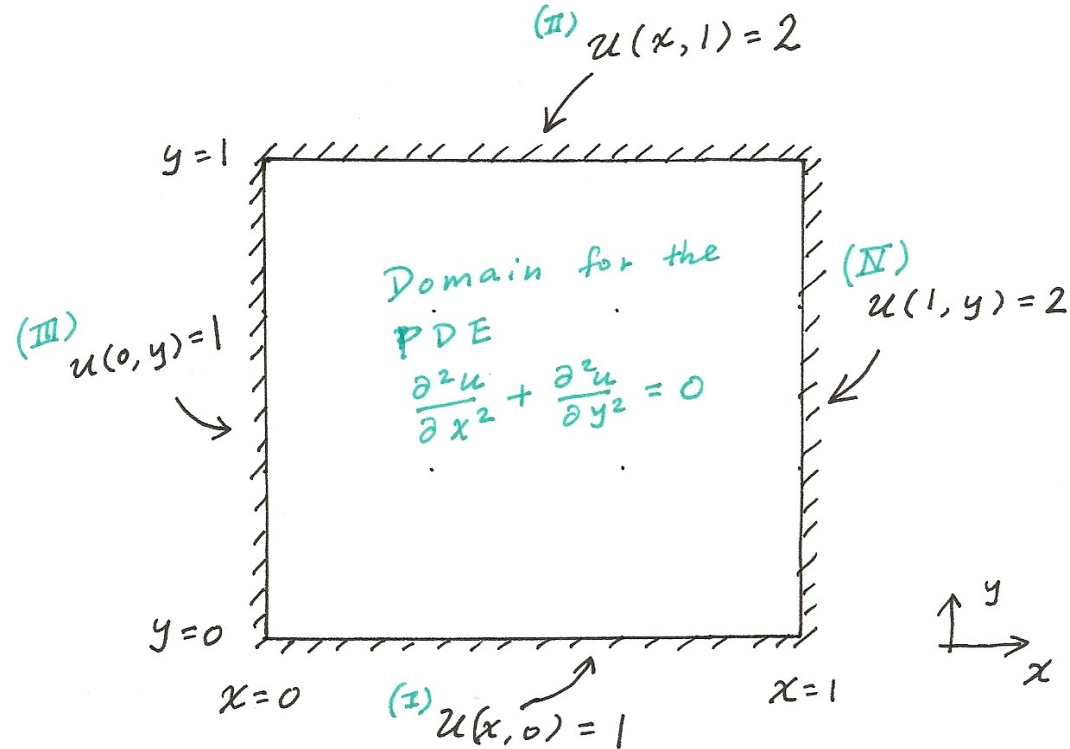 (II) u(x,1)=2
y=1
Domain for the
PDE
∂²u/∂x² + ∂²u/∂y² = 0
(III) u(0,y)=1
(IV)
u(1,y)=2
y=0
x=0
(I) u(x,0)=1
x=1
y
x